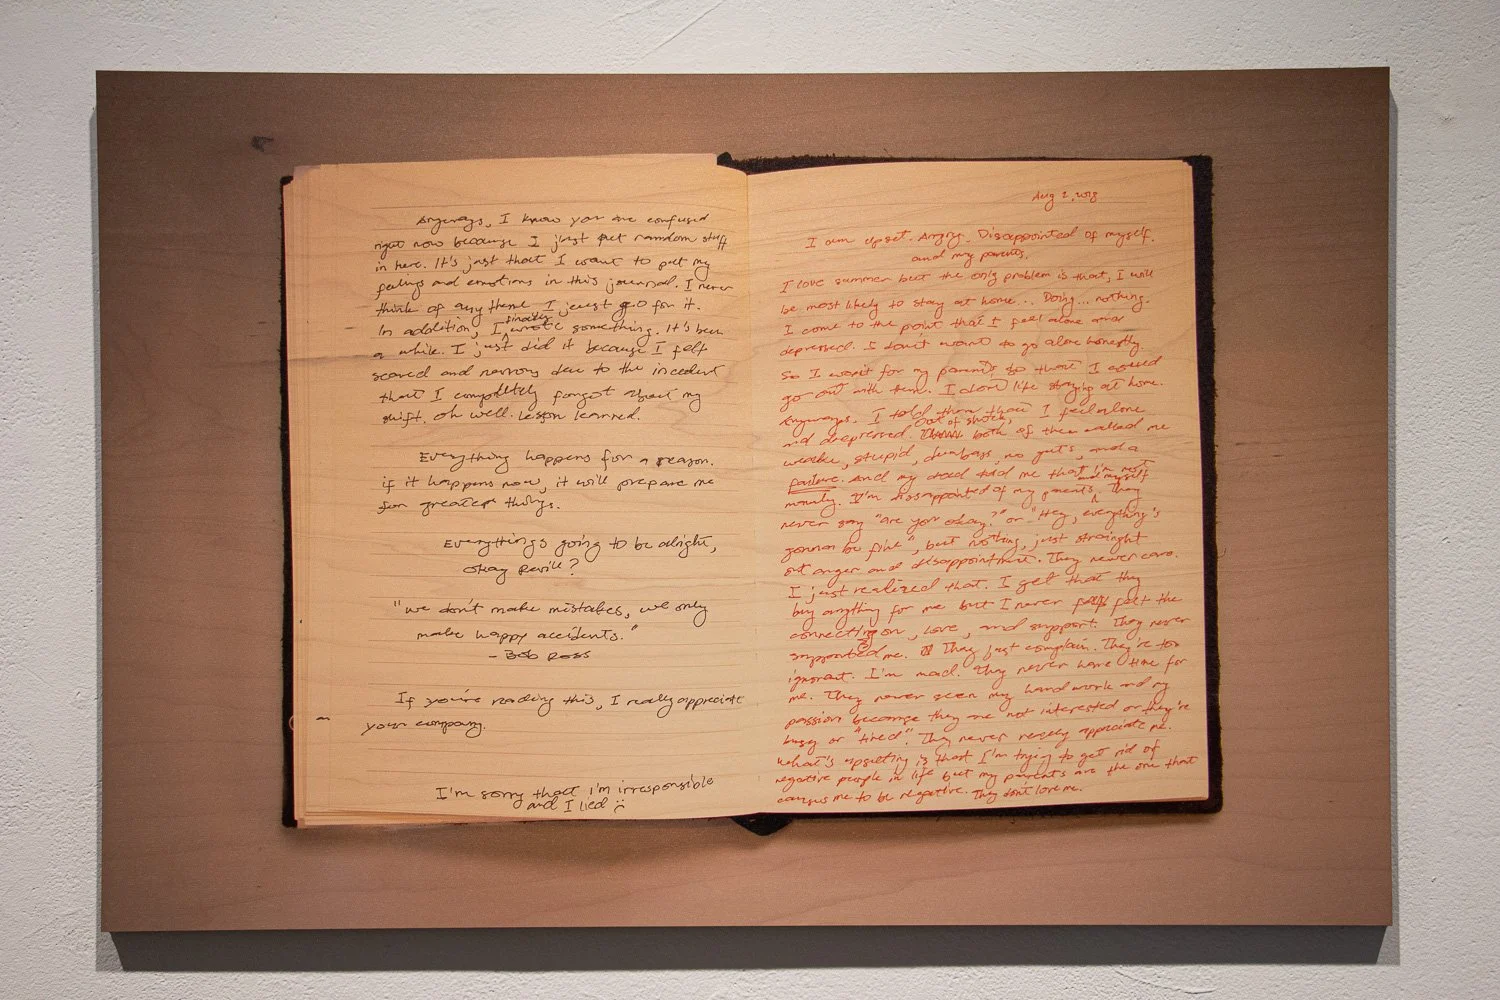 Anyways, I know you are confused
right now because I just put random stuff
in here. It's just that I want to put my
feelings and emotions in this journal. I never
think of any theme I just go for it.
In addition, I finally wrote something. It's been
a while. I just did it because I felt
scared and nervous due to the incedent
that I completely forgot about my
shift. oh well. Lesson learned.
Everything happens for a reason.
if it happens now, it will prepare me
for greater things.
Everything's going to be alright,
okay
"we don't make mistakes, we only
make happy accidents."
- Bob Ross
If you're reading this, I really appreciate
your company.
I'm sorry that i'm irresponsible
and I lied :(
Aug 2, 2018
I am upset. Angry. Disappointed of myself.
and my parents.
I love summer but the only problem is that, I will
be most likely to stay at home... Doing... nothing.
I come to the point that I feel alone and
depressed. I don't want to go alone honestly
so I wait for my parents so that I could
go out with them. I don't like staying at home.
Anyways. I told them that I feel alone
and depressed. Out of shock, both of them called me
weak, stupid, dumbass, no guts, and a
failure. And my dad told me that i'm not
manly. I'm disappointed of my parents and myself. They
never say "are you okay?" or "Hey, everything's
gonna be fine", but nothing, just straight
out anger and disappointment. They never care.
I just realized that. I get that they
buy anything for me but I never felt the
connection, love, and support. They never
supported me. They just complain. They're too
ignorant. I'm mad. They never have time for
me. They never seen my hardwork and my
passion because they are not interested or they're
busy or "tired". They never really appreciate me.
What's upsetting is that I'm trying to get rid of
negative people in life but my parents are the one that
causes me to be negative. They don't love me.